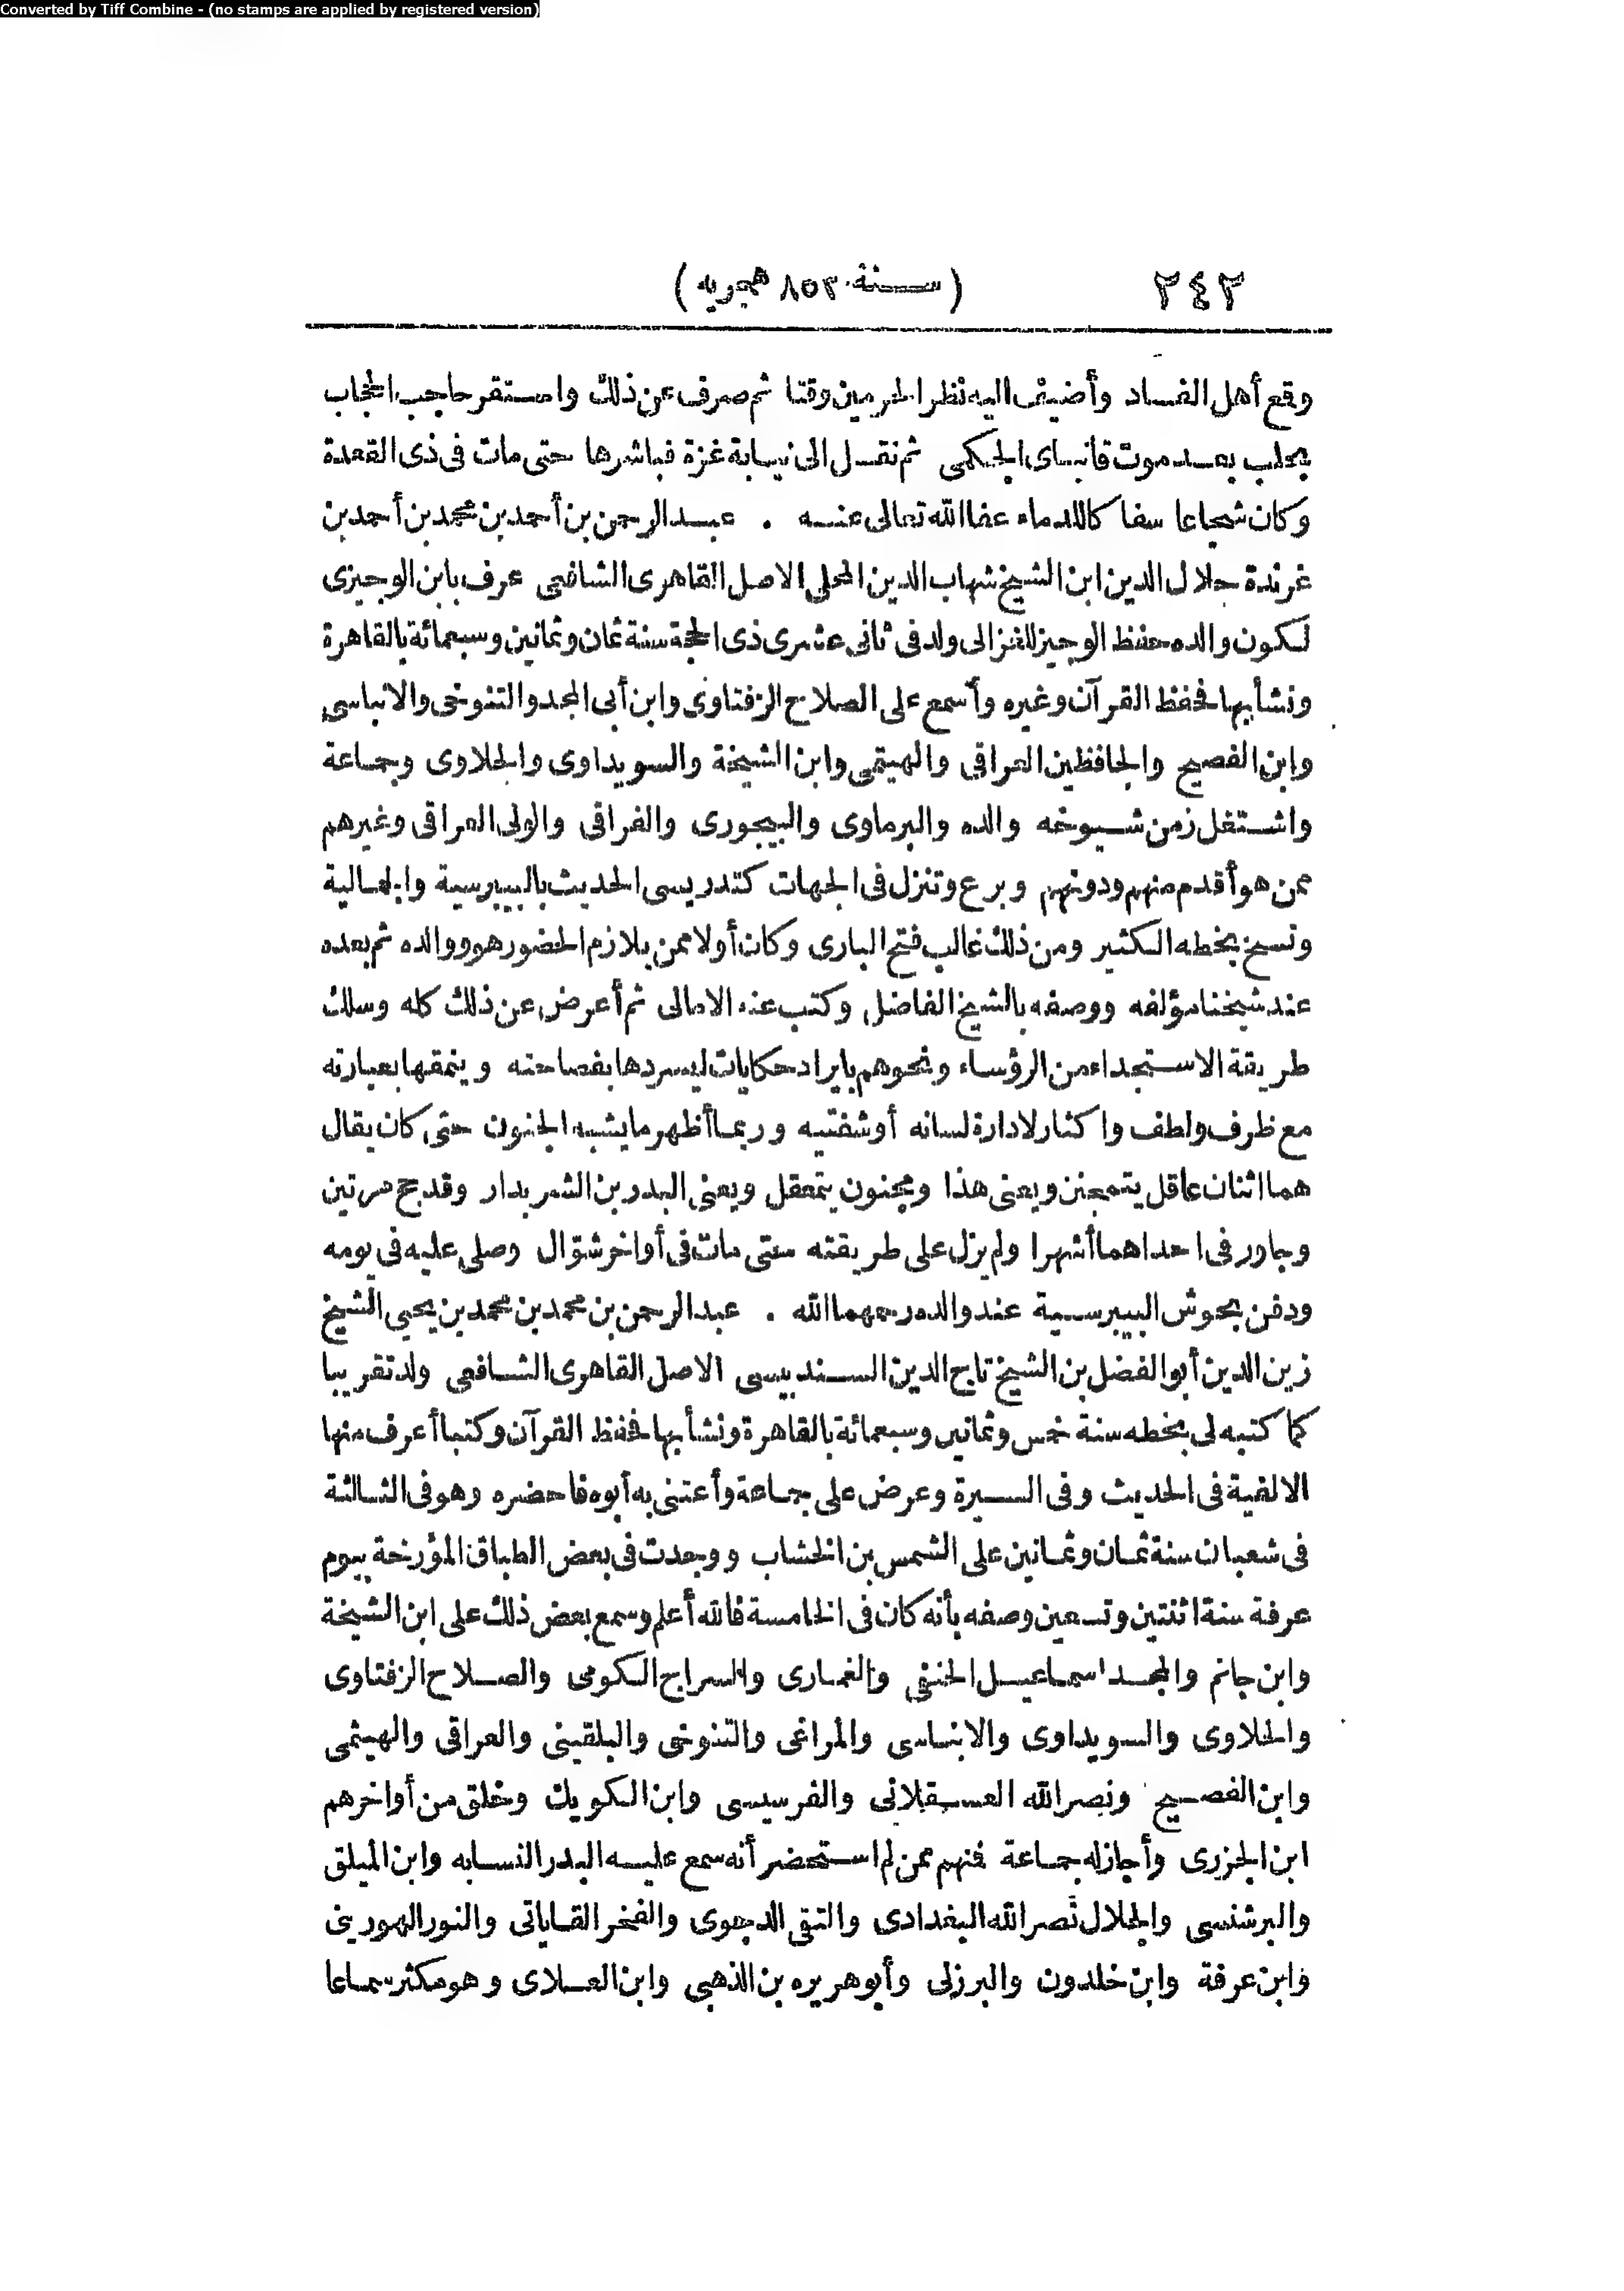 Converted by Tiff Combine - (no stamps are applied by registered version)
٢٤٢ (سنة ٨٥٢ هجريه)
وقع أهل الفساد وأضيف اليه نظر الحرمين وقتا ثم صرف عن ذلك واستقر حاجب الحجاب
بحلب بعد موت قانباى الجكمى ثم نقل الى نيابة غزة فباشرها حتى مات فى ذى القعدة
وكان شجاعا سفا كاللدماء عفا الله تعالى عنه . عبد الرحمن بن أحمد بن محمد بن أحمد بن
عرندة جلال الدين ابن الشيخ شهاب الدين المحلى الاصل القاهرى الشافعى عرف بابن الوجيزى
لكون والده حفظ الوجيز للغزالى ولد فى ثانى عشرى ذى الحجة سنة ثمان وثمانين وسبعمائة بالقاهرة
ونشأ بها فحفظ القرآن وغيره وأسمع على الصلاح الزفتاوى وابن أبى المجد والتنوخى والانباسى
وابن الفصيح والحافظين العراقى والهيتمى وابن الشيخة والسويداوى والحلاوى وجماعة
واشتغل زمن شيوخه والده والبرماوى والبيجورى والغراقى والولى العراقى وغيرهم
ممن هو أقدم منهم ودونهم وبرع وتنزل فى الجهات كتدريسى الحديث بالبيبرسية والجمالية
ونسخ بخطه الكثير ومن ذلك غالب فتح البارى وكان أولا ممن يلازم الحضور هو ووالده ثم بعده
عند شيخنا مؤلفه ووصفه بالشيخ الفاضل وكتب عنه الامالى ثم أعرض عن ذلك كله وسلك
طريقة الاستجداء من الرؤساء ونحوهم بايراد حكايات ليسردها بفصاحته وينمقها بعبارته
مع ظرف ولطف واكثار لادارة لسانه أو شفتيه وربما أظهر ما يشبه الجنون حتى كان يقال
هما اثنان عاقل يتمجنن ويعنى هذا ومجنون يتعقل ويعنى البدر بن الشربدار وقد حج مرتين
وجاور فى احداهما أشهرا ولم يزل على طريقته حتى مات فى أواخر شوّال وصلى عليه فى يومه
ودفن بحوش البيبرسية عند والده رحمهما الله . عبد الرحمن بن محمد بن محمد بن يحيى الشيخ
زين الدين أبو الفضل بن الشيخ تاج الدين السنديسى الاصل القاهرى الشافعى ولد تقريبا
كما كتبه لى بخطه سنة خمس وثمانين وسبعمائة بالقاهرة ونشأ بها فحفظ القرآن وكتبا أعرف منها
الالفية فى الحديث وفى السيرة وعرض على جماعة وأعتنى به أبوه فاحضره وهو فى الثالثة
فى شعبان سنة ثمان وثمانين على الشمس بن الخشاب ووجدت فى بعض الطباق المؤرخة بيوم
عرفة سنة اثنتين وتسعين وصفه بأنه كان فى الخامسة فالله أعلم وسمع بعض ذلك على ابن الشيخة
وابن حاتم والمجد اسماعيل الحنفى والغمارى والسراج الكومى والصلاح الزفتاوى
والحلاوى والسويداوى والابناسى والمراغى والتنوخى والبلقينى والعراقى والهيثمى
وابن الفصيح ونصر الله العسقلانى والفرسيسى وابن الكويك وخلق من أواخرهم
ابن الجزرى وأجاز له جماعة فمنهم ممن لم استحضر أنه سمع عليه البدر النسابه وابن الميلق
والبرشنسى والجلال نصر الله البغدادى والتقى الدجوى والفخر القاياتى والنور الهورينى
وابن عرفة وابن خلدون والبرزلى وأبو هريره بن الذهبى وابن العلاى وهو مكثر سماعا